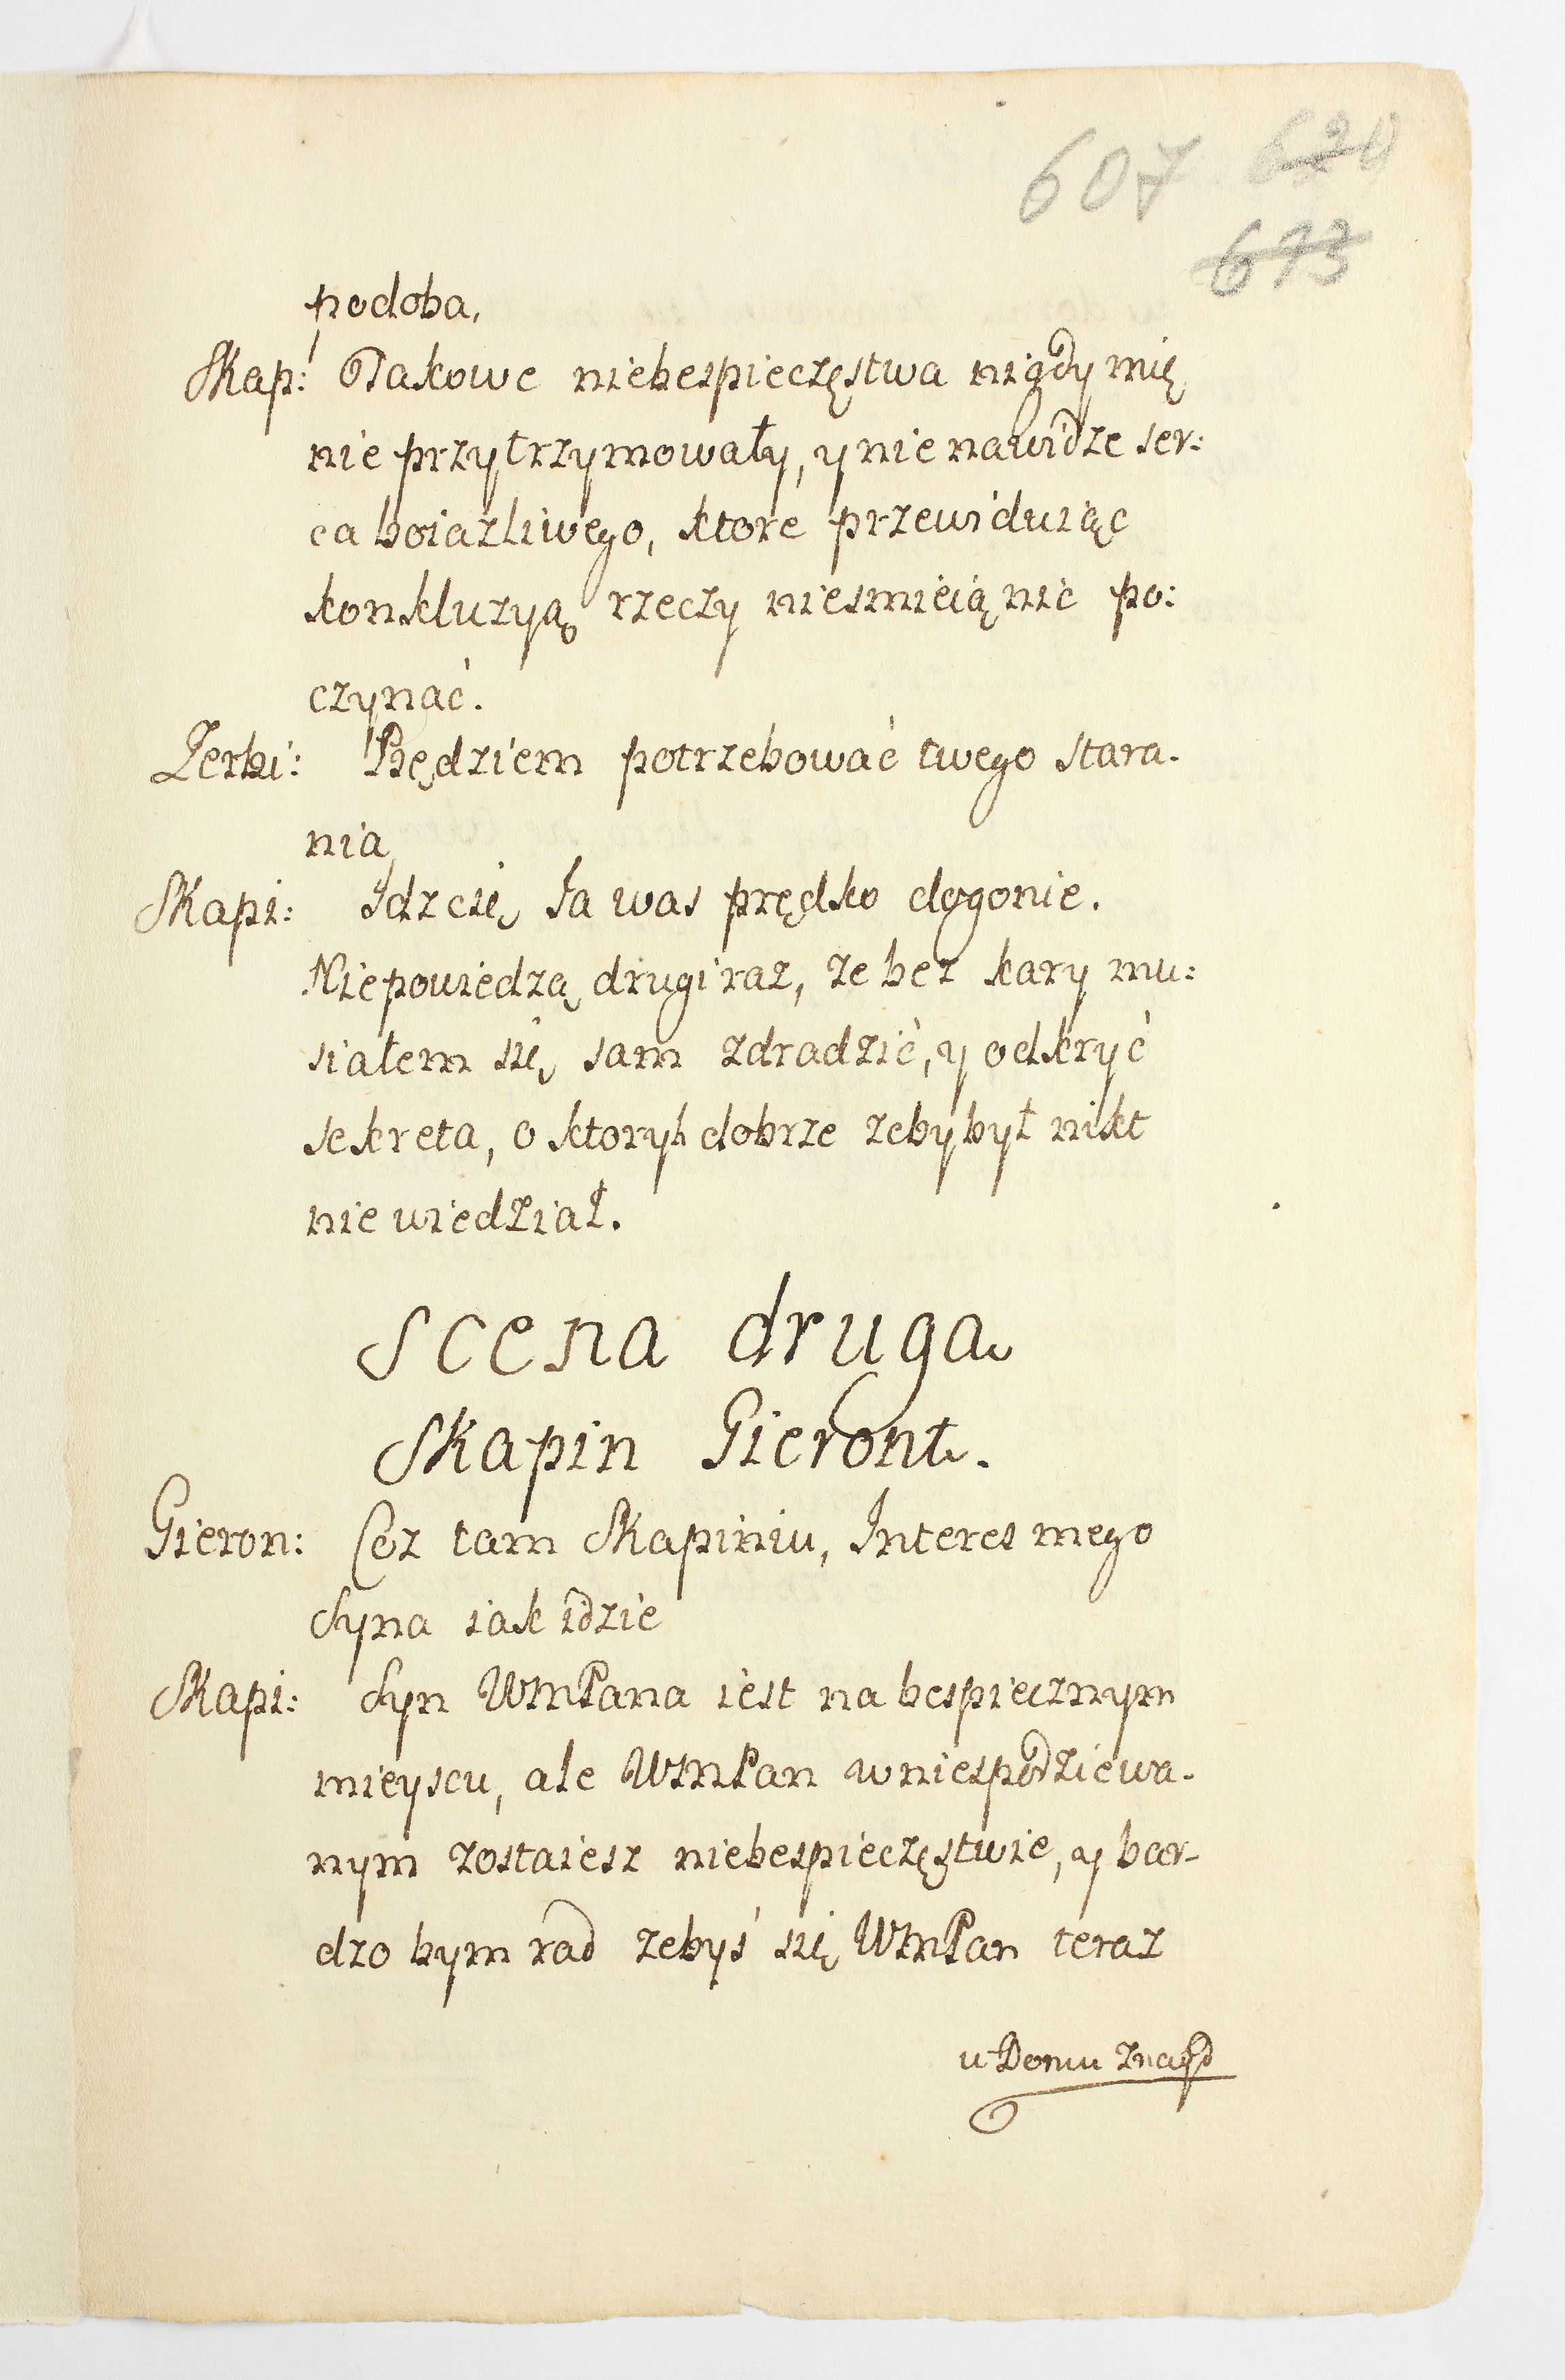 607 620
613
podoba,
Skap: Takowe niebespieczęstwa nigdy mię
nie przytrzymowały, y nie nawidze ser:
ca boiazliwego, ktore przewiduiąc
konkluzyą rzeczy niesmieią nic po:
czynać.
Zerbi: Będziem potrzebować twego stara-
nia,
Skapi: Idzcię, Ja was prędko dogonie.
Niepowiedzą drugi raz, ze bez kary mu:
siałem się, sam zdradzić, y odkryć
sekreta, o ktoryh dobrze zeby był nikt
nie wiedział.
Scena druga
Skapin Gieront.
Gieron: Coz tam Skapiniu, Interes mego
Syna iak idzie
Skapi: Syn WMPana iest na bespiecznym
mieyscu, ale WMPan w niespodziewa-
nym zostaiesz niebespieczęstwie, y bar-
dzo bym rad zebyś się WMPan teraz
u Domu znayd